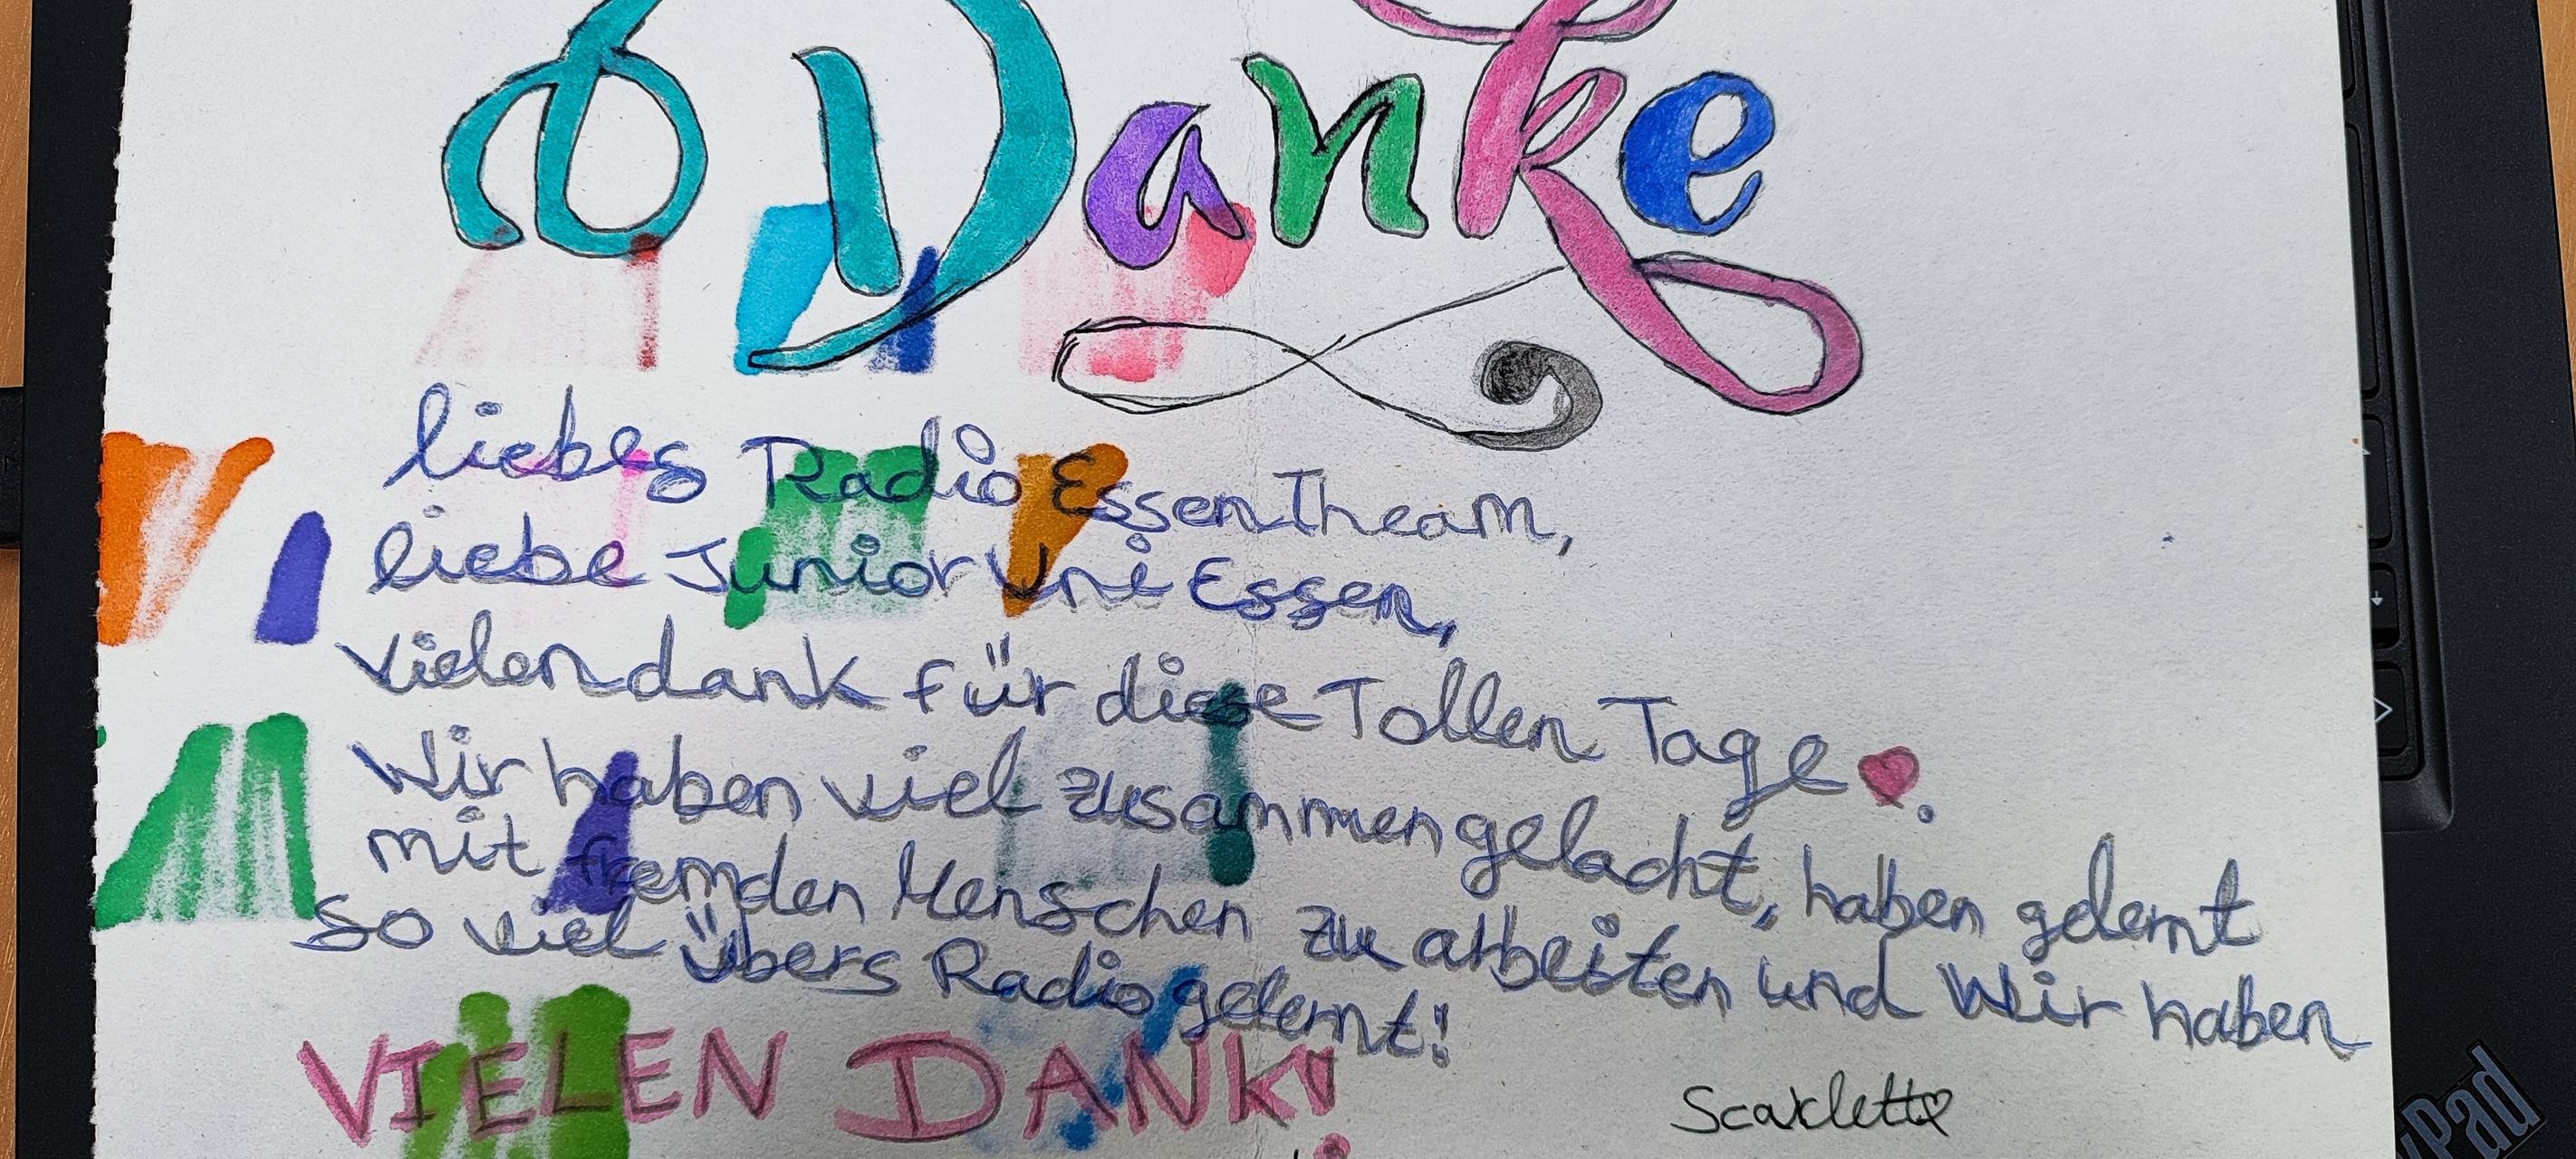 Danke
liebes Radio Essen Theam,
liebe Junior Uni Essen,
vielen dank für diese Tollen Tage.
Wir haben viel zusammen gelacht, haben gelernt
mit fremden Menschen zu arbeiten und Wir haben
so viel übers Radio gelernt!
VIELEN DANK!
Scarlett
Pad